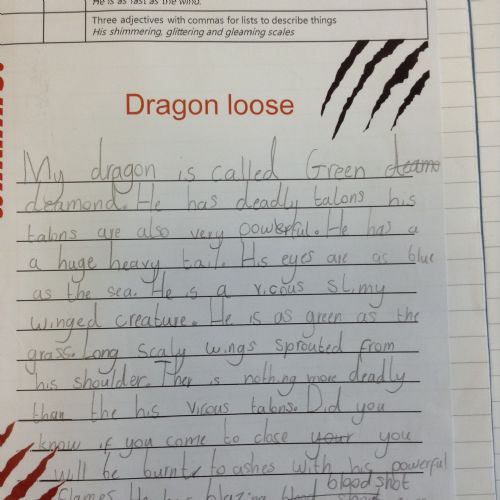 He is as fast as the wind.
Three adjectives with commas for lists to describe things
His shimmering, glittering and gleaming scales
Dragon loose
My dragon is called Green
deamond. He has deadly talons his
talons are also very powerful. He has a
a huge heavy tail. His eyes are as blue
as the sea. He is a vicous slimy
winged creature. He is as green as the
grass. Long scaly wings sprouted from
his shoulder. Ther is nothing more deadly
than the his vicous talons. Did you
know if you come to close your you
will be burnt to ashes with his powerful
flames. He has blazing blood shot